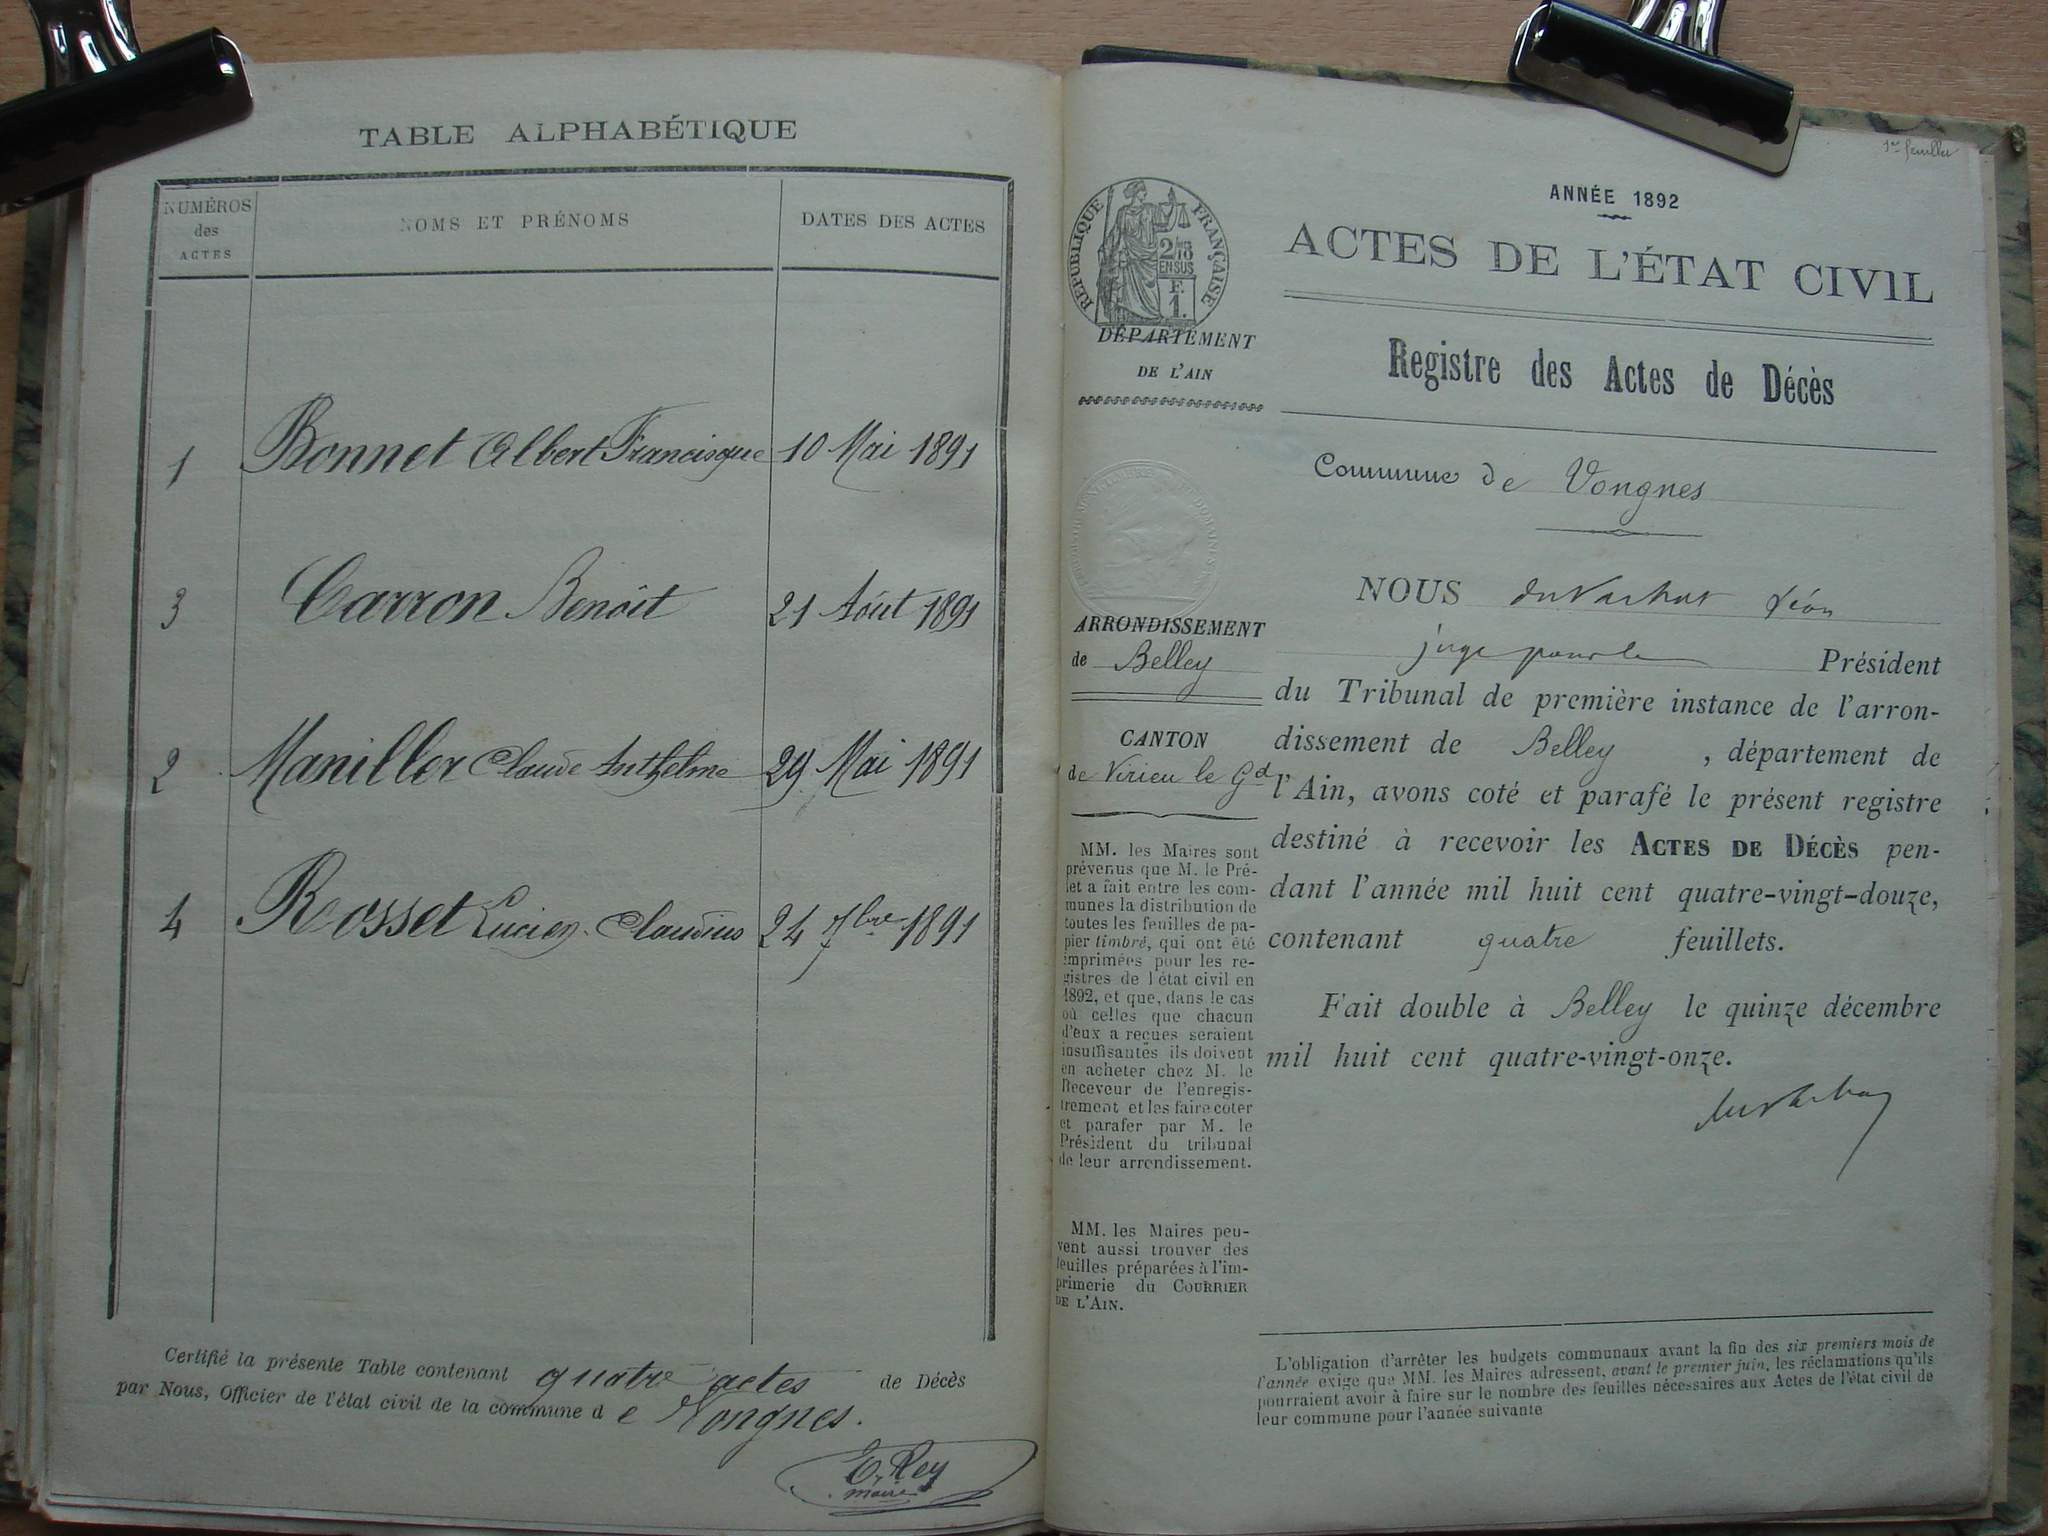 TABLE ALPHABÉTIQUE
NUMÉROS des ACTES
NOMS ET PRÉNOMS
DATES DES ACTES
1 Bonnet Albert Francisque 10 Mai 1891
3 Carron Benoit 21 Août 1891
2 Maniller Claude Anthelme 29 Mai 1891
4 Rosset Lucien Claudius 24 7bre 1891
Certifié la présente Table contenant quatre actes de Décès
par Nous, Officier de l'état civil de la commune d e Vongnes.
E. Rey
maire
1er feuillet
ANNÉE 1892
ACTES DE L'ÉTAT CIVIL
Registre des Actes de Décès
RÉPUBLIQUE FRANÇAISE
2/10
EN SUS
F.
1.
DÉPARTEMENT
DE L'AIN
ARRONDISSEMENT
de Belley
CANTON
de Virieu le Gd
MM. les Maires sont
prévenus que M. le Pré-
fet a fait entre les com-
munes la distribution de
toutes les feuilles de pa-
pier timbré, qui ont été
imprimées pour les re-
gistres de l'état civil en
1892, et que, dans le cas
où celles que chacun
d'eux a reçues seraient
insuffisantes ils doivent
en acheter chez M. le
Receveur de l'enregis-
trement et les faire coter
et parafer par M. le
Président du tribunal
de leur arrondissement.
MM. les Maires peu-
vent aussi trouver des
feuilles préparées à l'im-
primerie du COURRIER
DE L'AIN.
Commune de Vongnes
NOUS Léon
juge pour le Président
du Tribunal de première instance de l'arron-
dissement de Belley , département de
l'Ain, avons coté et parafé le présent registre
destiné à recevoir les ACTES DE DÉCÈS pen-
dant l'année mil huit cent quatre-vingt-douze,
contenant quatre feuillets.
Fait double à Belley le quinze décembre
mil huit cent quatre-vingt-onze.
L'obligation d'arrêter les budgets communaux avant la fin des six premiers mois de
l'année exige que MM. les Maires adressent, avant le premier juin, les réclamations qu'ils
pourraient avoir à faire sur le nombre des feuilles nécessaires aux Actes de l'état civil de
leur commune pour l'année suivante